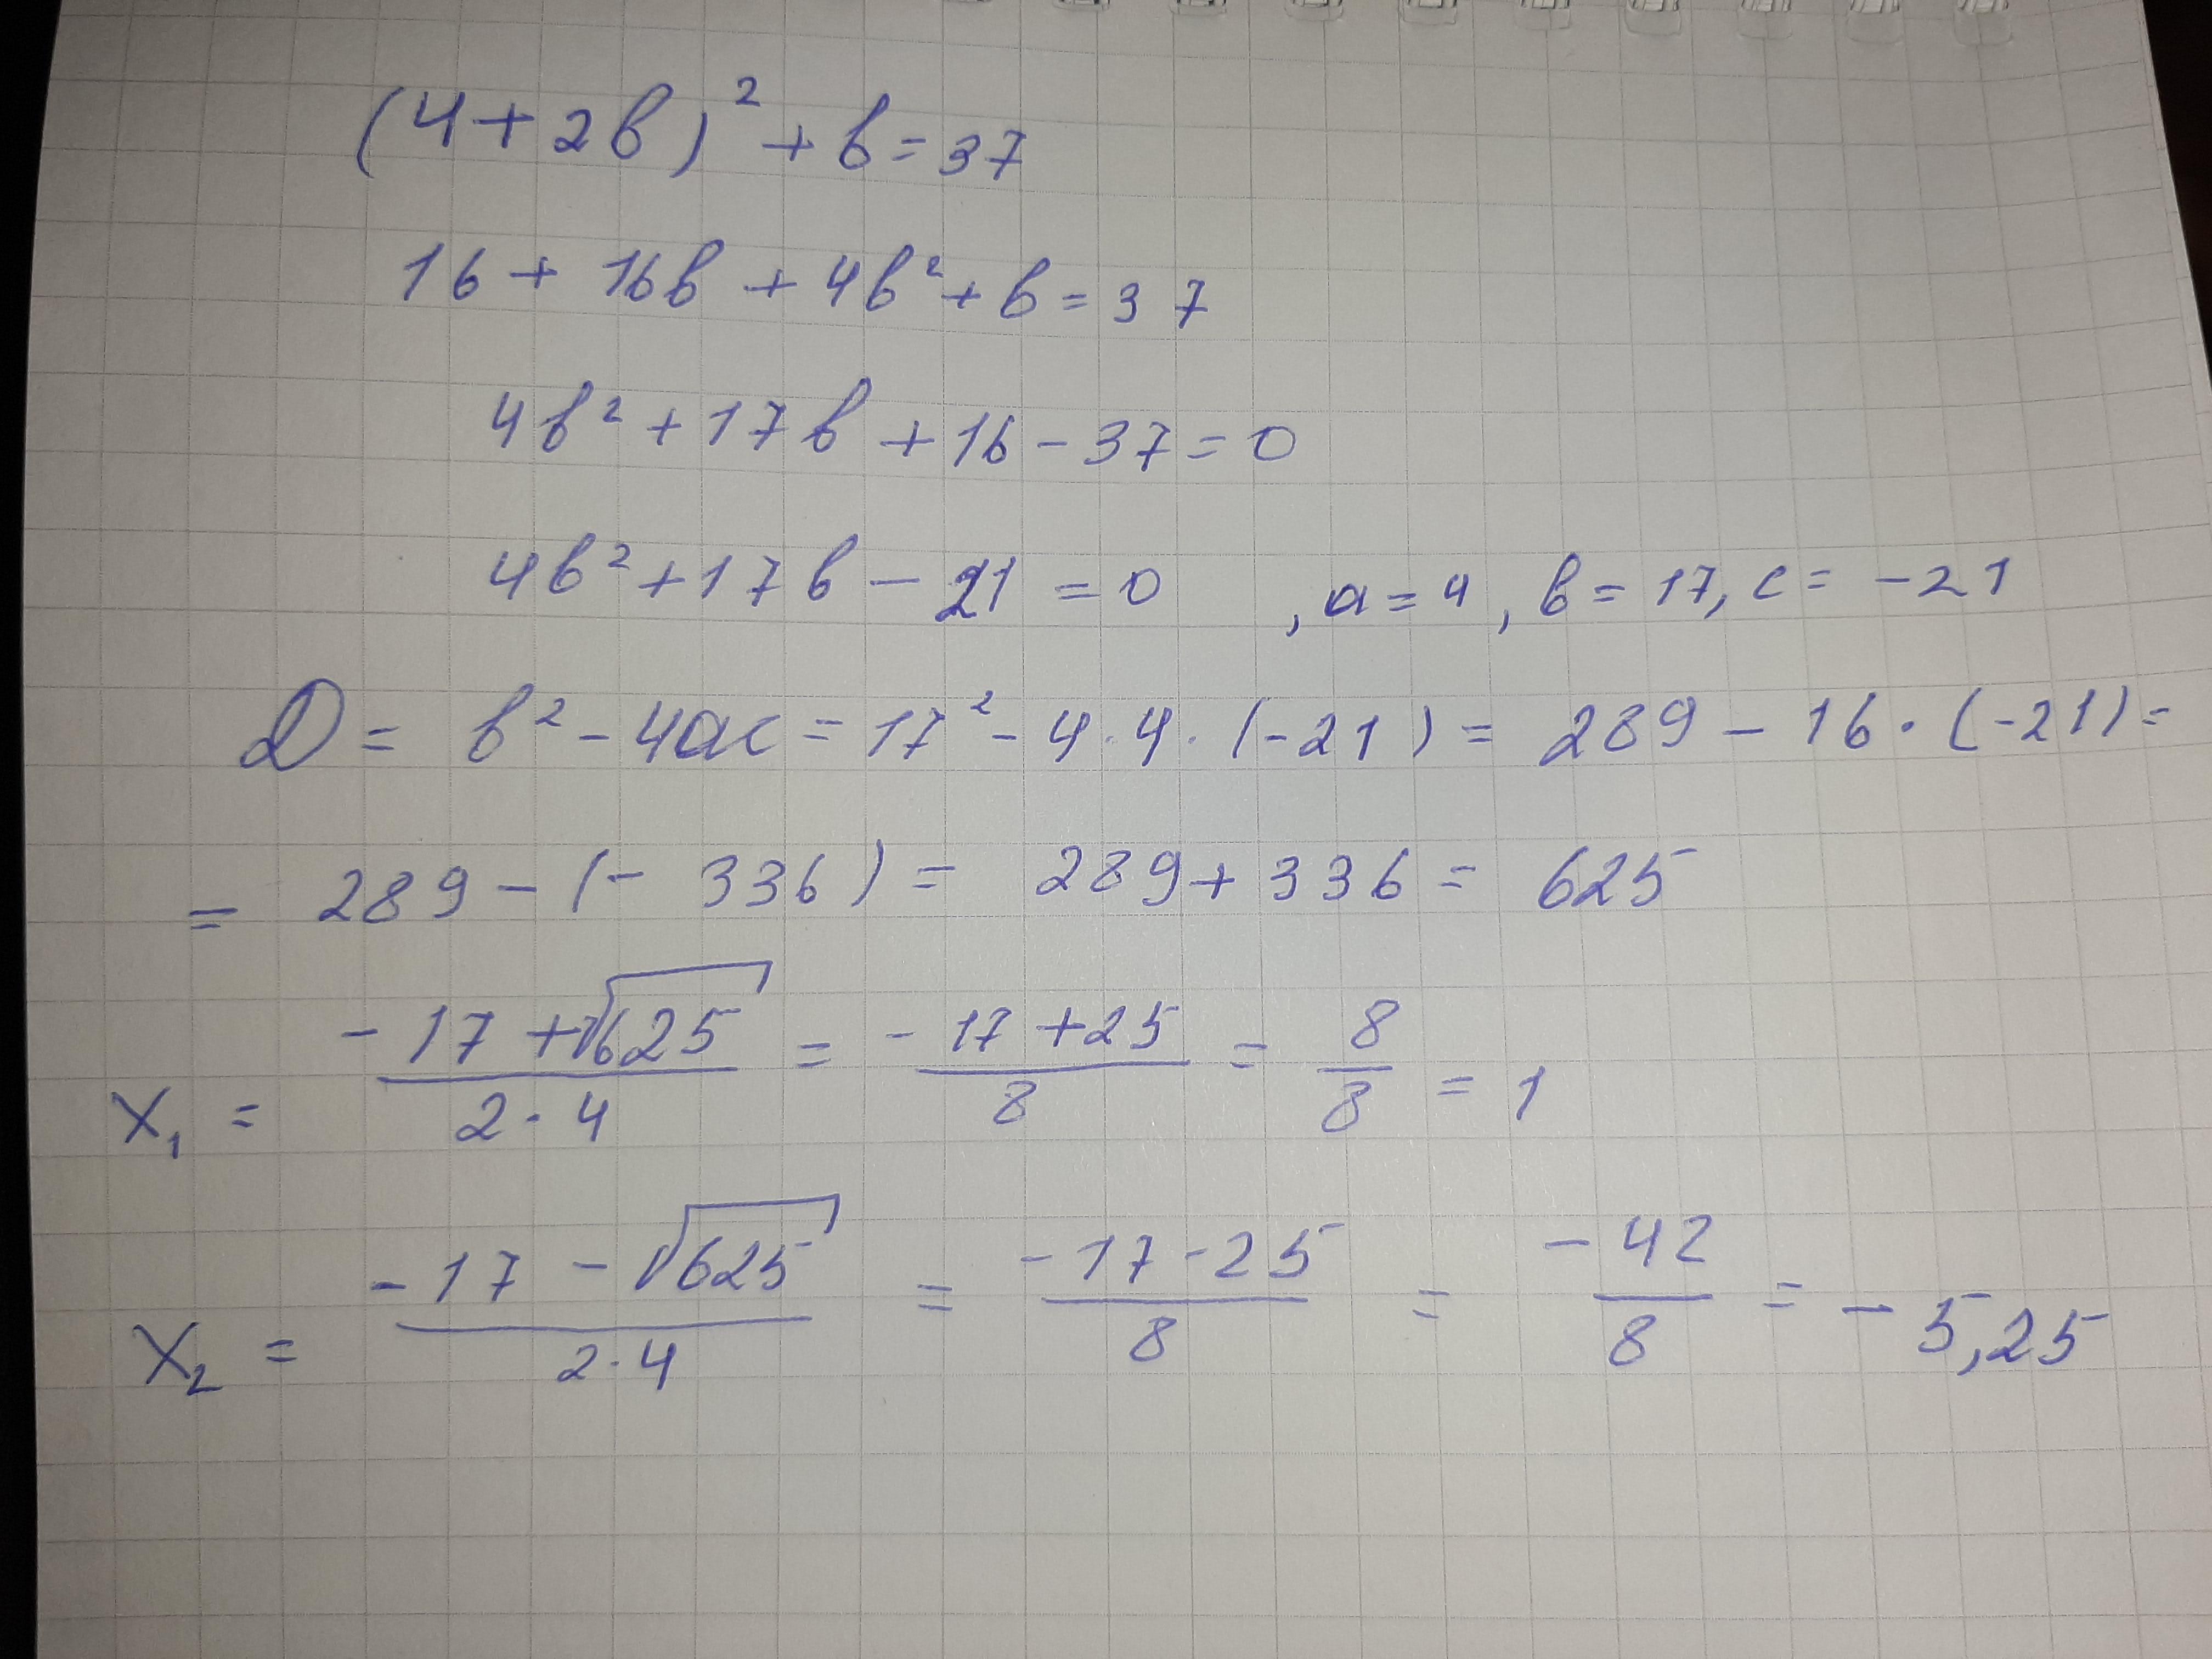 (4+2b)²+b=37
16+16b+4b²+b=37
4b²+17b+16-37=0
4b²+17b-21=0 ,a=4,b=17,c=-21
D=b²-4ac=17²-4·4·(-21)=289-16·(-21)=
=289-(-336)=289+336=625
x₁=(-17+√625)/(2·4)=(-17+25)/8=8/8=1
x₂=(-17-√625)/(2·4)=(-17-25)/8=-42/8=-5,25